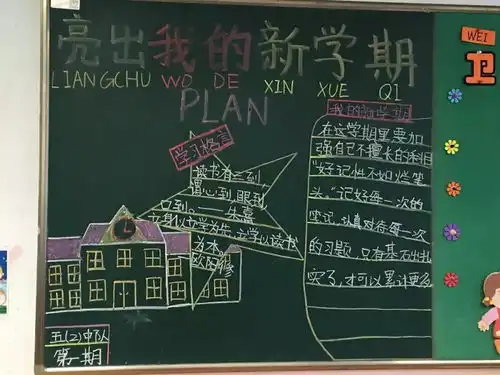 亮出我的新学期
LIANGCHU WO DE XIN XUE QI
PLAN
学习格言
读书有三到,
谓心到 眼到
口到。——朱熹
立身以立学为先,立学以读书
为本
欧阳修
我的新学期
在这学期里要加
强自己不擅长的科目
"好记性不如烂笔
头。"记好每一次的
笔记,认真对待每一次
的习题,只有基石出扎
实了,才可以累计更多
五(2)中队
第一期
WEI
卫